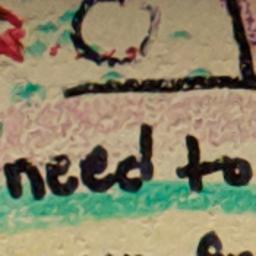 need to